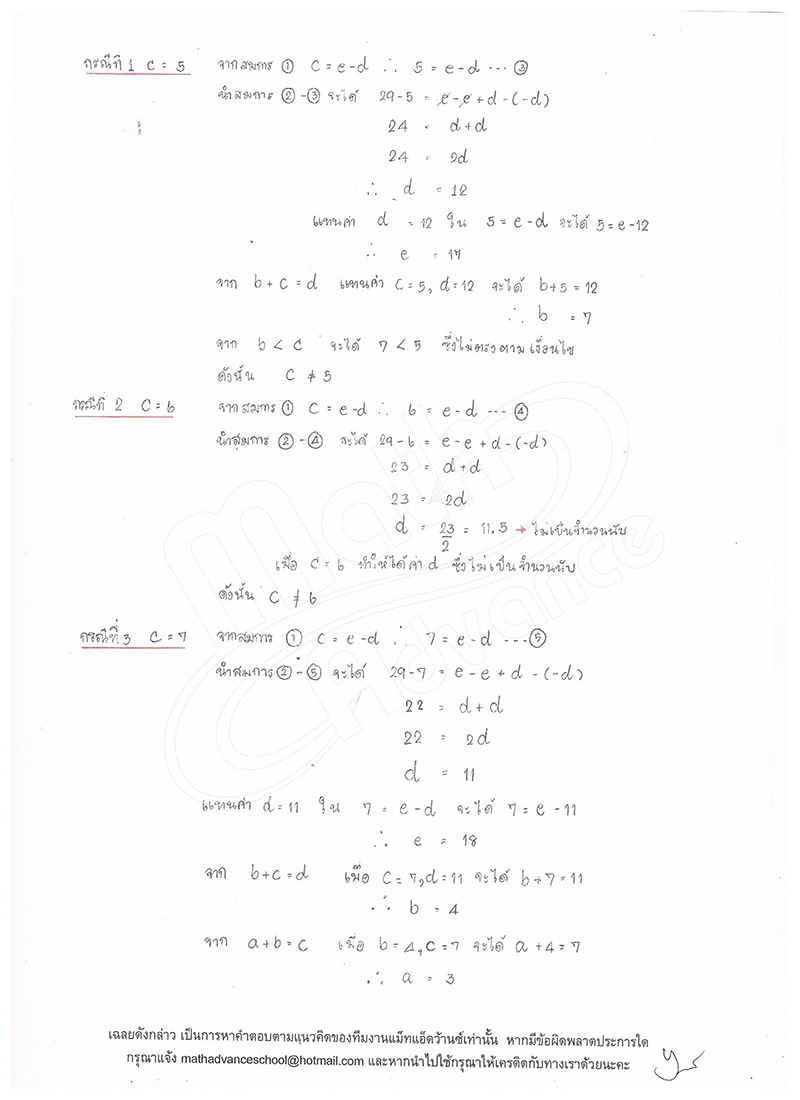 กรณีที่ 1 C = 5 จากสมการ ① C = e-d ∴ 5 = e-d --- ③
นำสมการ ②-③ จะได้ 29-5 = e-e+d-(-d)
24 = d+d
24 = 2d
∴ d = 12
แทนค่า d = 12 ใน 5 = e-d จะได้ 5 = e-12
∴ e = 17
จาก b+c = d แทนค่า C = 5, d = 12 จะได้ b+5 = 12
∴ b = 7
จาก b < c จะได้ 7 < 5 ซึ่งไม่ตรงตามเงื่อนไข
ดังนั้น C ≠ 5
กรณีที่ 2 C = 6 จากสมการ ① C = e-d ∴ 6 = e-d --- ④
นำสมการ ②-④ จะได้ 29-6 = e-e+d-(-d)
23 = d+d
23 = 2d
d = 23/2 = 11.5 → ไม่เป็นจำนวนนับ
เมื่อ C = 6 ทำให้ได้ค่า d ซึ่งไม่เป็นจำนวนนับ
ดังนั้น C ≠ 6
กรณีที่ 3 C = 7 จากสมการ ① C = e-d ∴ 7 = e-d --- ⑤
นำสมการ ②-⑤ จะได้ 29-7 = e-e+d-(-d)
22 = d+d
22 = 2d
d = 11
แทนค่า d = 11 ใน 7 = e-d จะได้ 7 = e-11
∴ e = 18
จาก b+c = d เมื่อ C = 7, d = 11 จะได้ b+7 = 11
∴ b = 4
จาก a+b = c เมื่อ b = 4, c = 7 จะได้ a+4 = 7
∴ a = 3
Math Advance
เฉลยดังกล่าว เป็นการหาคำตอบตามแนวคิดของทีมงานแม็ทแอ็ดว้านซ์เท่านั้น หากมีข้อผิดพลาดประการใด
กรุณาแจ้ง mathadvanceschool@hotmail.com และหากนำไปใช้กรุณาให้เครดิตกับทางเราด้วยนะคะ